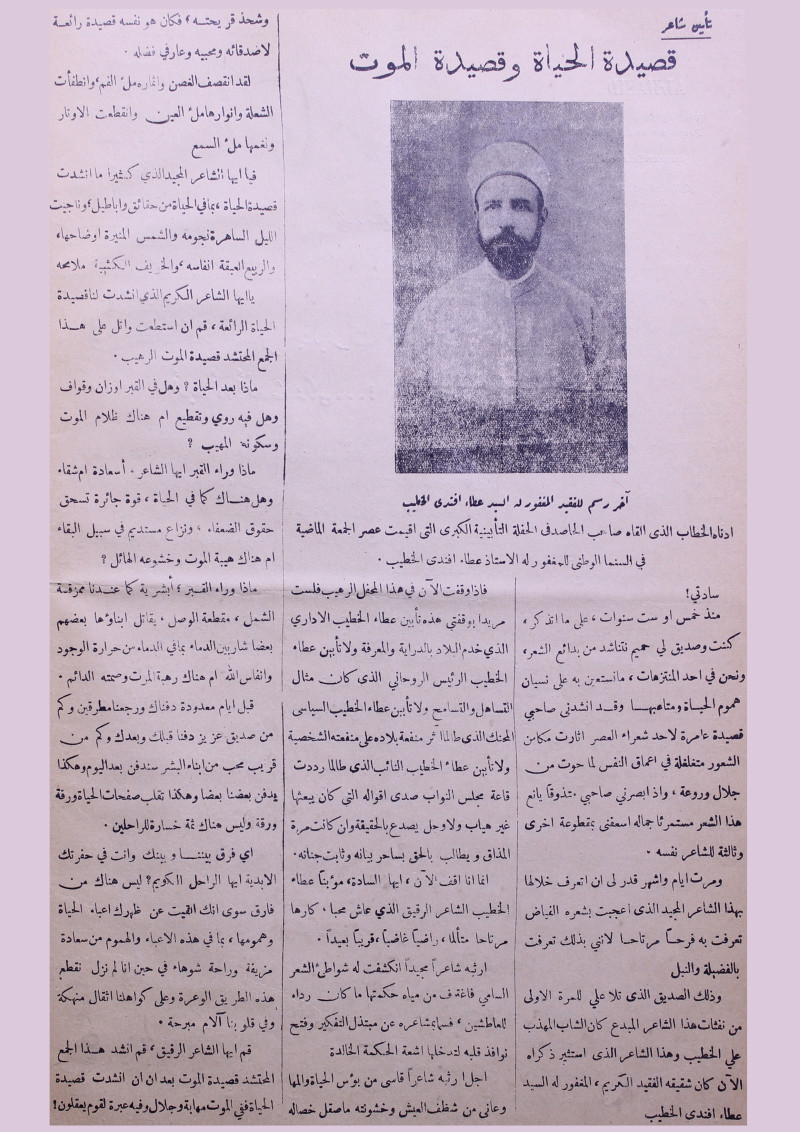 تأبين شاعر
قصيدة الحياة وقصيدة الموت
آخر رسم للفقيد المغفور له السيد عطاء افندي الخطيب
ادناه الخطاب الذى القاه صاحب الحاصد فى الحفلة التأبينية الكبرى التى اقيمت عصر الجمعة الماضية
في السنما الوطني للمغفور له الاستاذ عطاء افندي الخطيب ·
سادتي!
منذ خمس او ست سنوات ، على ما اتذكر ،
كنت وصديق لي حميم نتناشد من بدائع الشعر،
ونحن في احد المنتزهات ، مانستعين به على نسيان
هموم الحياة ومتاعبها وقد انشدنى صاحبي
قصيدة عامرة لاحد شعراء العصر اثارت مكامن
الشعور متغلغلة في اعماق النفس لما حوت من
جلال وروعة ، واذ ابصرني صاحبي متذوقا يانع
هذا الشعر مستمرئا جماله اسعفنى بمقطوعة اخرى
وثالثة للشاعر نفسه ·
ومرت ايام واشهر قدر لى ان اتعرف خلالها
بهذا الشاعر المجيد الذى اعجبت بشعره الفياض
تعرفت به فرحاً مرتاحا لانني بذلك تعرفت
بالفضيلة والنبل
وذلك الصديق الذى تلا علي للمرة الاولى
من نفثات هذا الشاعر المبدع كان الشاب المهذب
علي الخطيب وهذا الشاعر الذى استثير ذكراه
الآن كان شقيقه الفقيد الكريم ، المغفور له السيد
عطاء افندى الخطيب
فاذا وقفت الآن في هذا المحفل الرهيب فلست
مريدا بوقفتي هذه تأبين عطاء الخطيب الاداري
الذي خدم البلاد بالدراية والمعرفة ولا تأبين عطاء
الخطيب الرئيس الروحاني الذى كان مثال
التساهل والتسامح ولا تأبين عطاء الخطيب السياسى
المحنك الذى طالما آثر منفعة بلاده على منفعته الشخصية
ولا تأبين عطاء الخطيب النائب الذى طالما رددت
قاعة مجلس النواب صدى اقواله التى كان يبعثها
غير هياب ولا وجل يصدع بالحقيقة وان كانت مرة
المذاق ويطالب بالحق بساحر بيانه وثابت جنانه.
انما انا اقف الآن ، ايها السادة، مؤبناً عطاء
الخطيب الشاعر الرقيق الذي عاش محبا ، كارها
مرتاحا متألما ، راضياً غاضباً ، قريباً بعيداً .
ارثيه شاعراً مجيداً انكشفت له شواطئ الشعر
السامي فاغترف من مياه حكمتها ما كان رداء
للعاطشين ، فسما بمشاعره عن مبتذل التفكير وفتح
نوافذ قلبه لتدخلها اشعة الحكمة الخالدة
اجل ارثيه شاعراً قاسى من بؤس الحياة والمها
وعانى من شظف العيش وخشونته ماصقل خصاله
وشحذ قريحته ، فكان هو نفسه قصيدة رائعة
لاصدقائه ومحبيه وعارفي فضله .
لقد انقصف الغصن واثماره ملء الفم ، وانطفأت
الشعلة وانوارها ملء العين وانقطعت الاوتار
ونغمها ملء السمع
فيا ايها الشاعر المجيد الذي كثيرا ما انشدت
قصيدة الحياة ، بما في الحياة من حقائق واباطيل ، وناجيت
الليل الساهرة نجومه والشمس المنيرة اوضاحها،
والربيع العبقة انفاسه ، والخريف الكئيبة ملامحه
ياايها الشاعر الكريم الذي انشدت لنا قصيدة
الحياة الرائعة ، قم ان استطعت واتل على هذا
الجمع المحتشد قصيدة الموت الرهيب .
ماذا بعد الحياة ؟ وهل في القبر اوزان وقواف
وهل فيه روي وتقطيع ام هناك ظلام الموت
وسكونه المهيب ؟
ماذا وراء القبر ايها الشاعر . أسعادة ام شقاء
وهل هناك كما في الحياة ، قوة جائرة تسحق
حقوق الضعفاء ، ونزاع مستديم في سبيل البقاء
ام هناك هيبة الموت وخشوعه الهائل ؟
ماذا وراء القبر ؛ أبشرية كما عندنا ممزقة
الشمل ، مقطعة الوصل . يقاتل ابناؤها بعضهم
بعضا شاربين الدماء بما في الدماء من حرارة الوجود
وانفاس الله ام هناك رهبة الموت وصمته الدائم .
قبل ايام معدودة دفناك ورجعنا مطرقين وكم
من صديق عزيز دفنا قبلك وبعدك وكم من
قريب محب من ابناء البشر سندفن بعد اليوم وهكذا
يدفن بعضنا بعضا وهكذا تقلب صفحات الحياة ورقة
ورقة وليس هناك ثمة خسارة للراحلين .
اي فرق بيننا وبينك وانت في حفرتك
الابدية ايها الراحل الكريم؟ ليس هناك من
فارق سوى انك القيت عن ظهرك اعباء الحياة
وهمومها ، بما في هذه الاعباء والهموم من سعادة
مزيفة وراحة شوهاء في حين انا لم نزل نقطع
هذه الطريق الوعرة وعلى كواهلنا اثقال منهكة
وفي قلوبنا آلام مبرحة .
قم ايها الشاعر الرقيق ، قم انشد هذا الجمع
المحتشد قصيدة الموت بعد ان انشدت قصيدة
الحياة ففي الموت مهابة وجلال وفيه عبرة لقوم يعقلون!